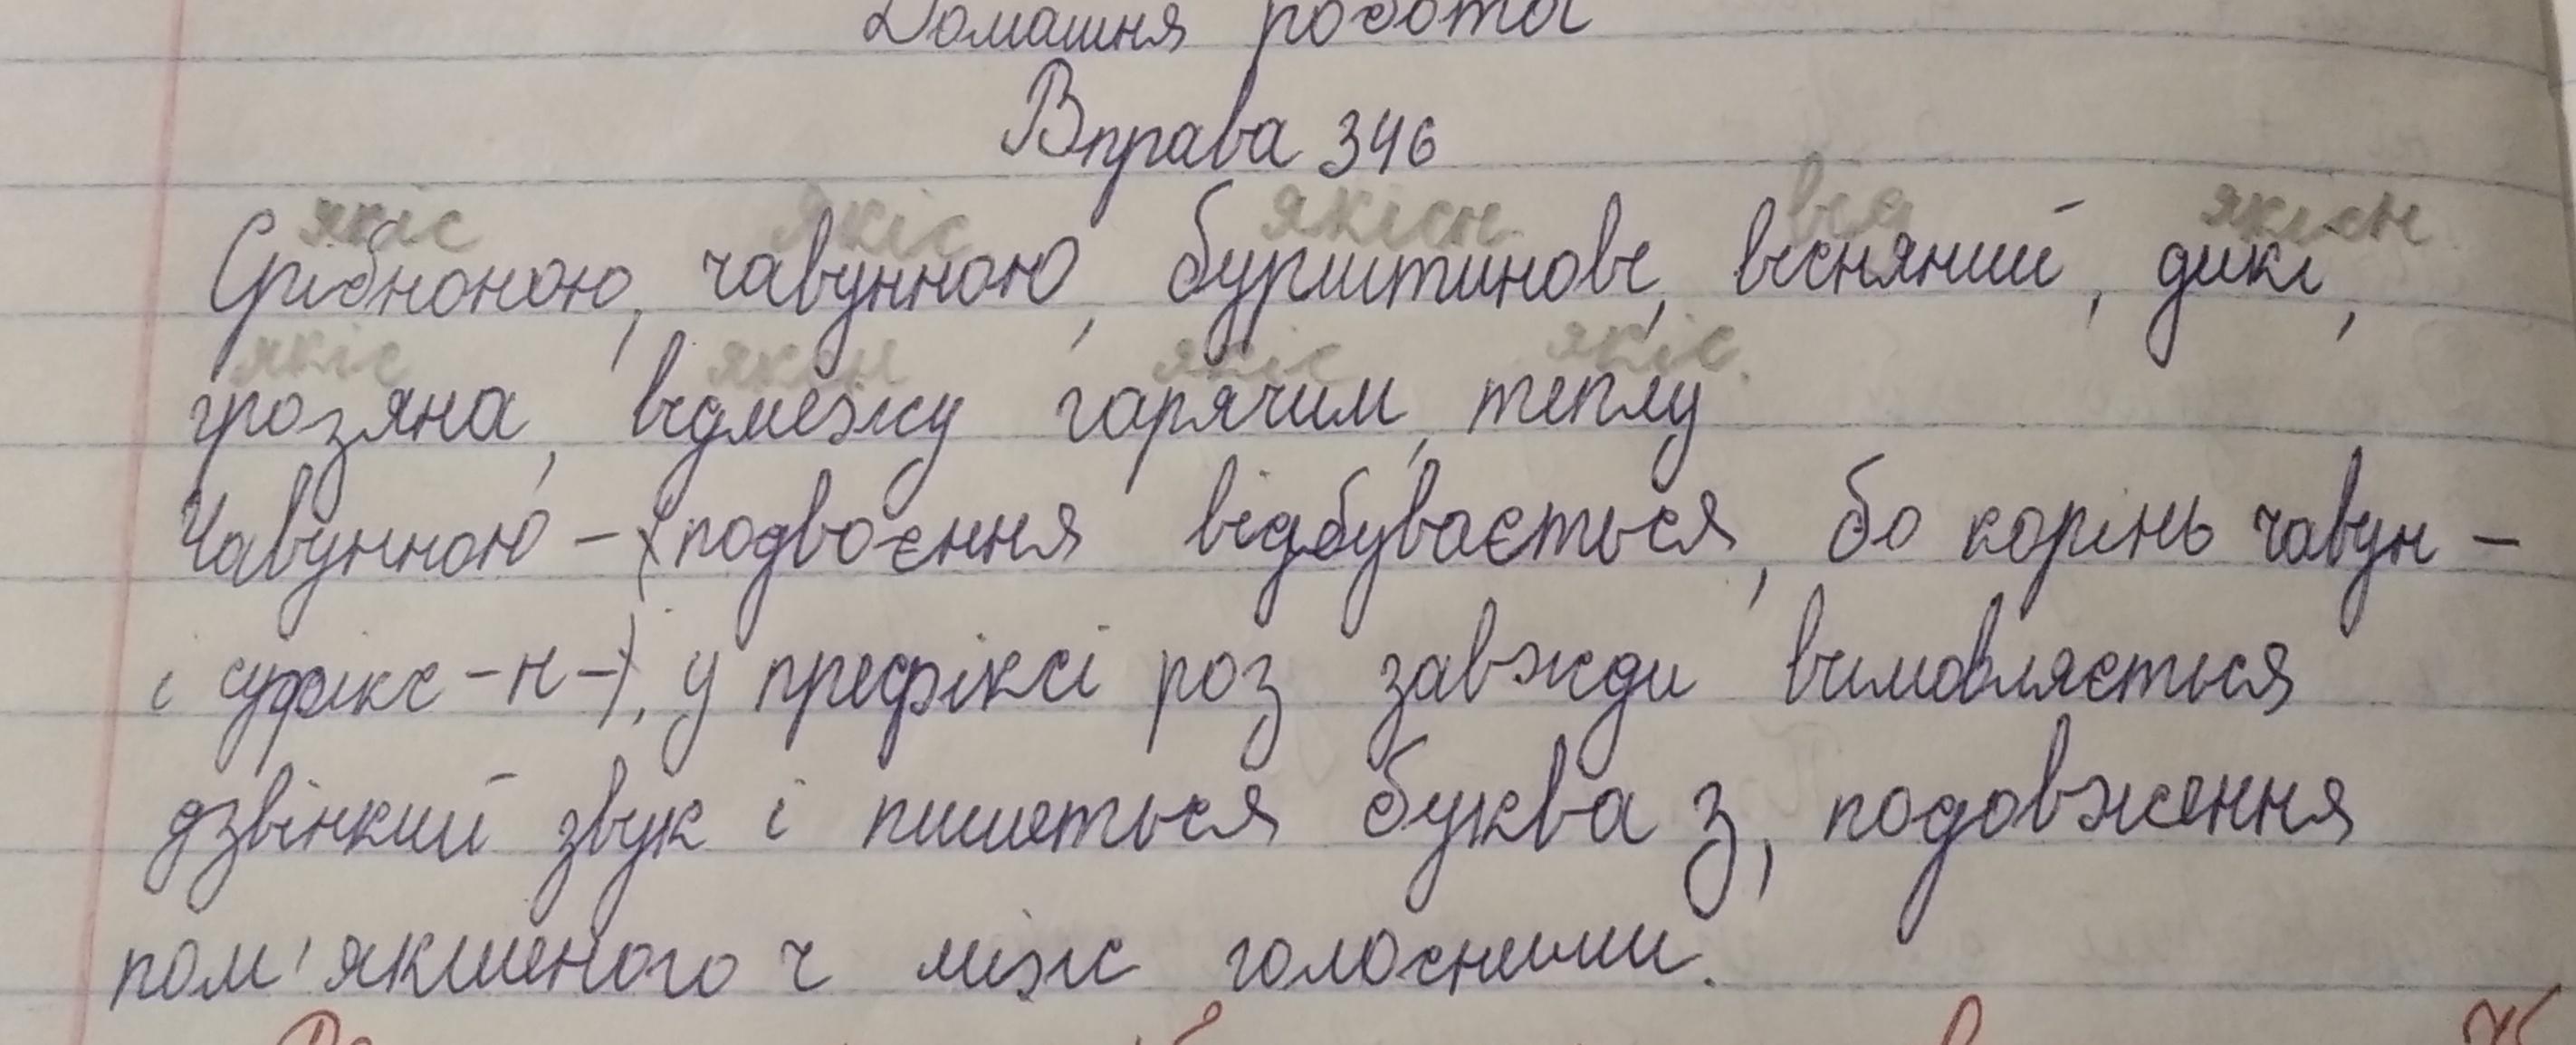 Домашня робота
Вправа 346
якіс якіс якісн від якісн
Срібноною, чавунною, бурштинові, весняний, дикі,
якіс якісн якіс якіс.
грозяна, відмежу гарячим, теплу
Чавунною – (подвоєння відбувається, бо корінь чавун –
і суфікс – н –), у префіксі роз завжди вимовляється
дзвінкий звук і пишеться буква з, подовження
пом'якшеного ч між голосними.